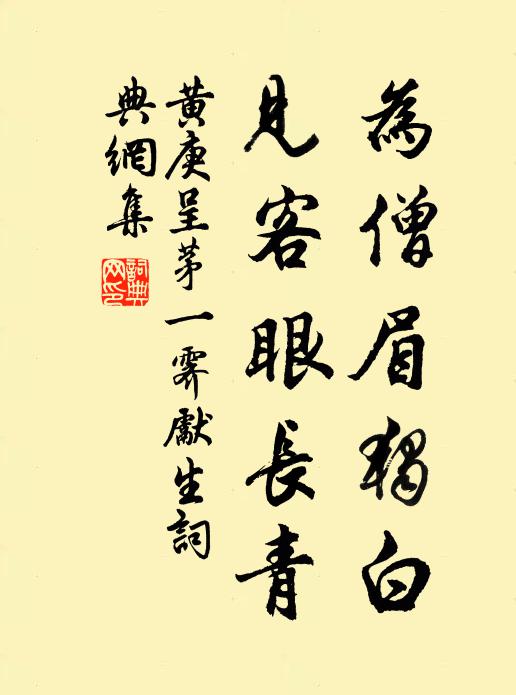 為僧眉獨白
見客眼長青
黃庚呈茅一霽獻生詞
典網集
詞典网印